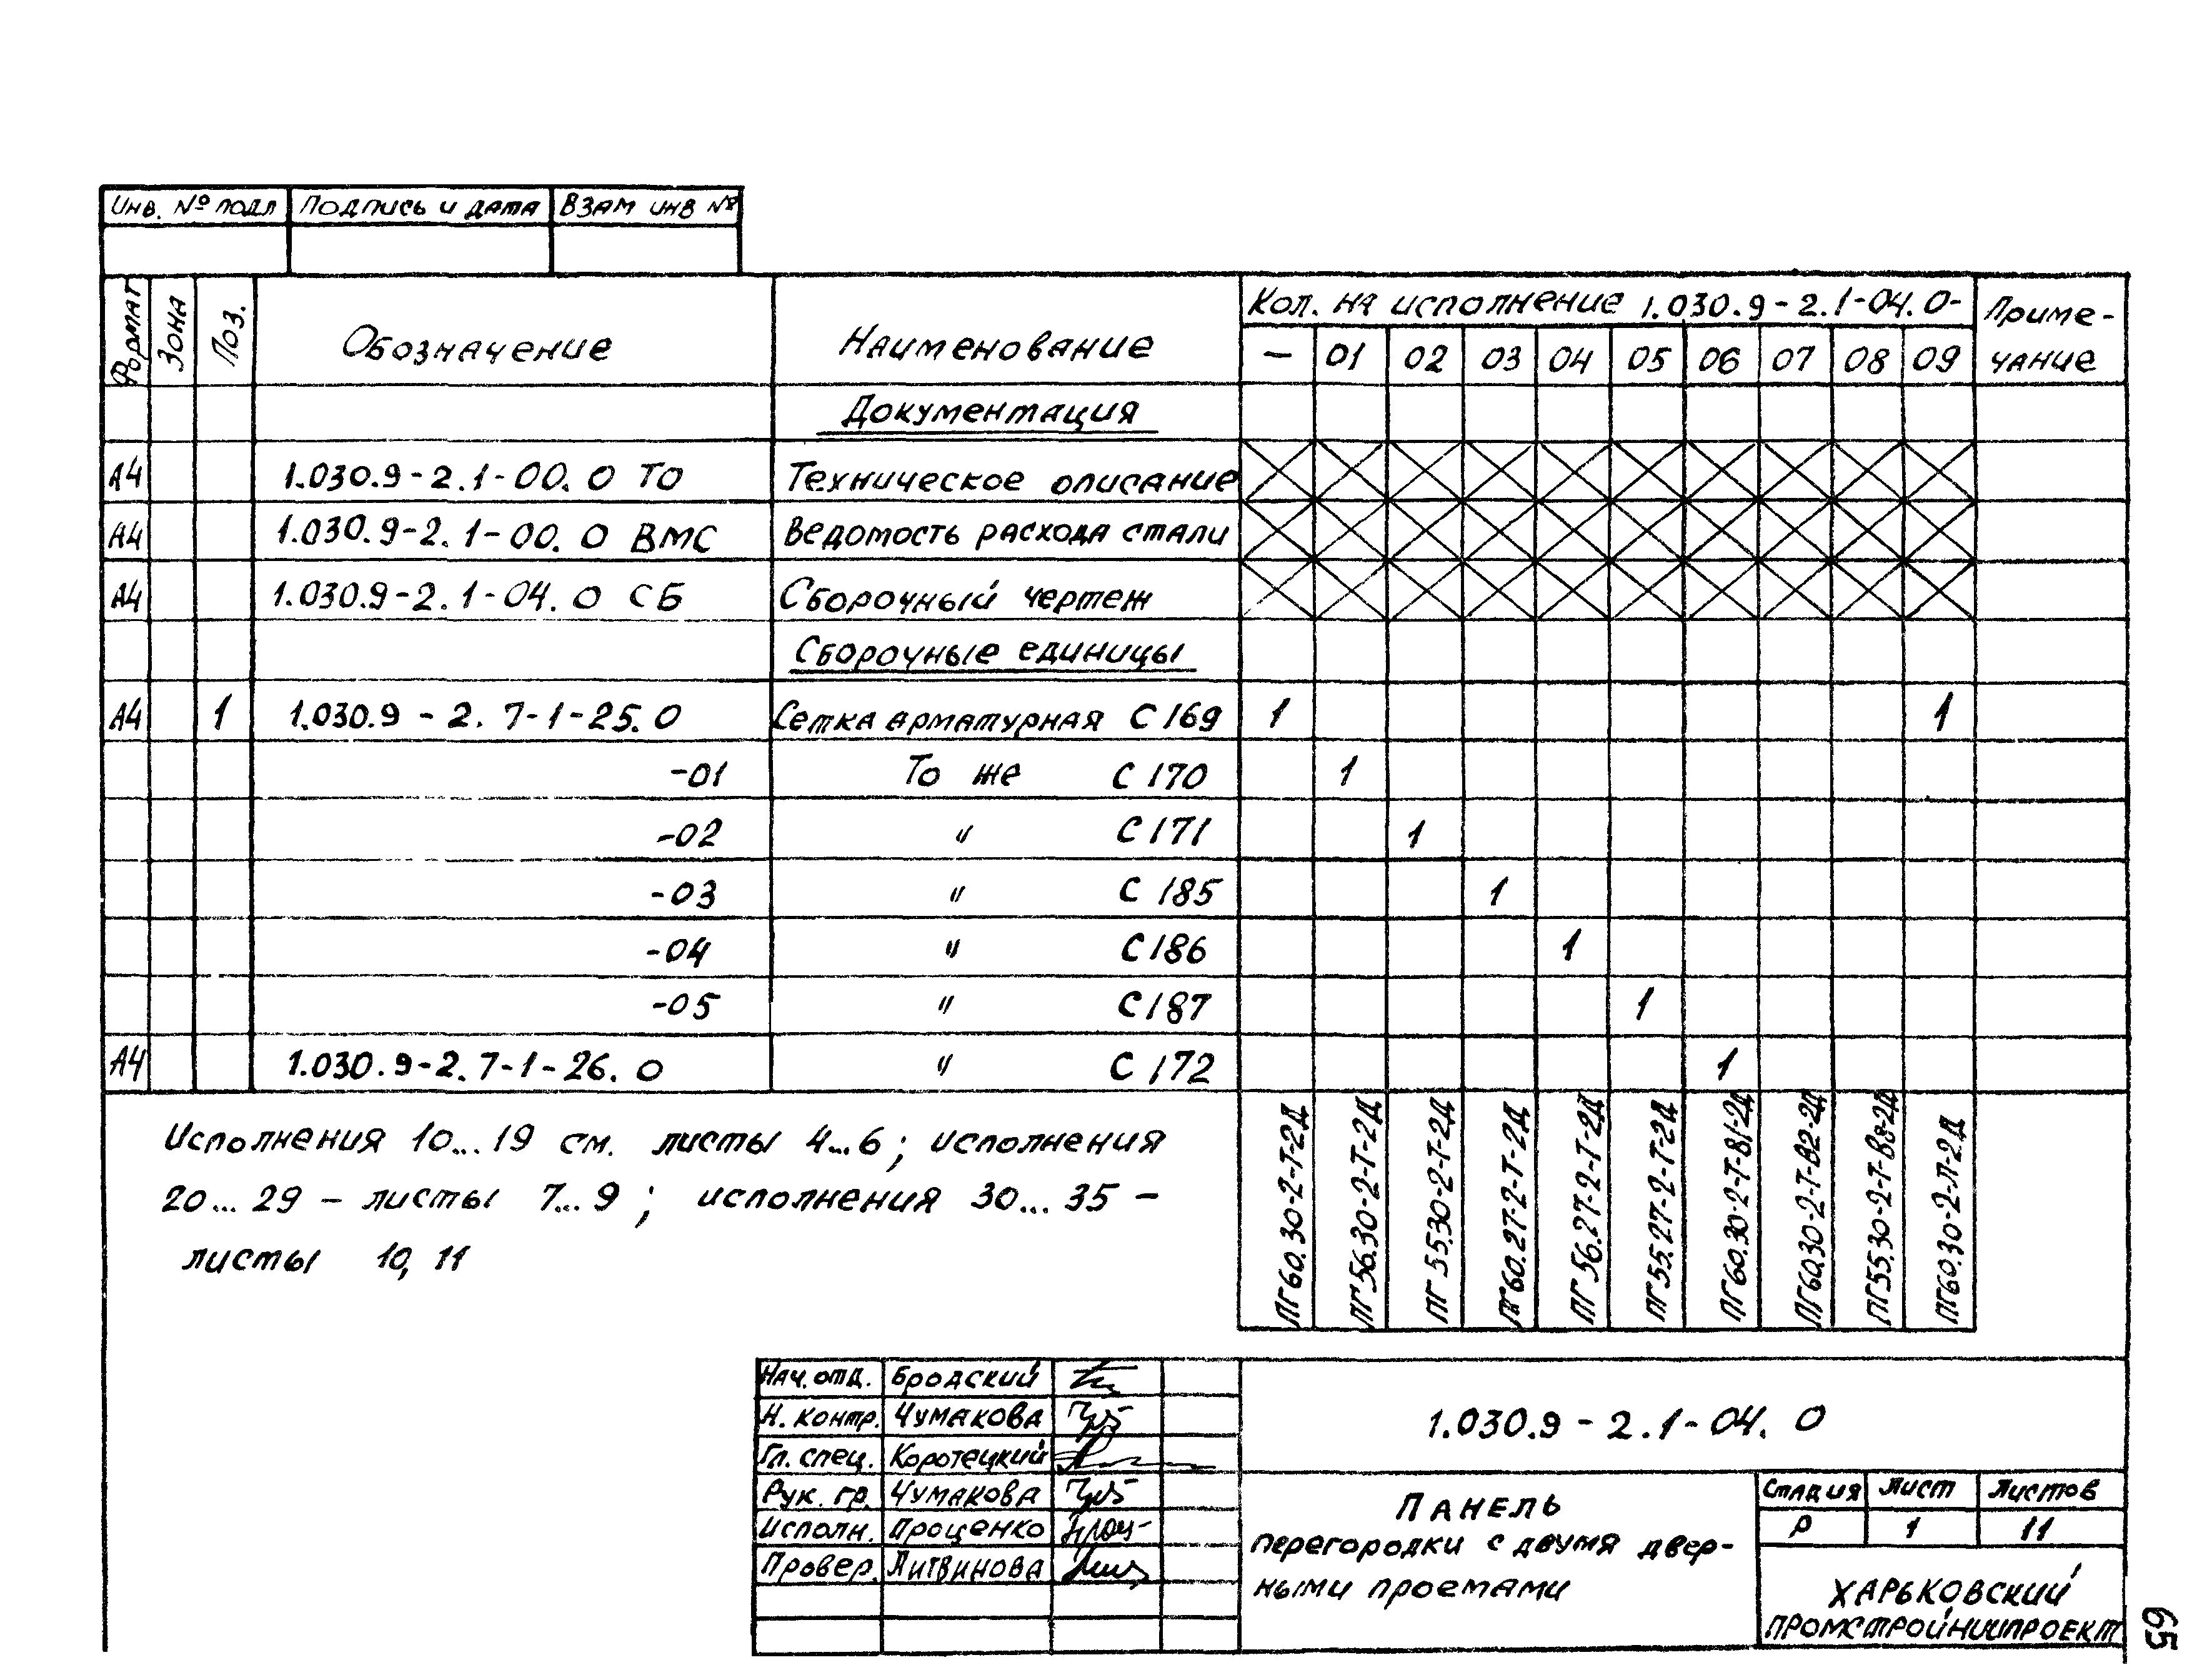 Инв. № подл Подпись и дата Взам инв №
Формат Зона Поз. Обозначение Наименование Кол. на исполнение 1.030.9-2.1-04.0- Приме-
чание
— 01 02 03 04 05 06 07 08 09
Документация
А4 1.030.9-2.1-00.0 ТО Техническое описание
А4 1.030.9-2.1-00.0 ВМС Ведомость расхода стали
А4 1.030.9-2.1-04.0 СБ Сборочный чертеж
Сборочные единицы
А4 1 1.030.9-2.7-1-25.0 Сетка арматурная С 169 1 1
-01 То же С 170 1
-02 " С 171 1
-03 " С 185 1
-04 " С 186 1
-05 " С 187 1
А4 1.030.9-2.7-1-26.0 " С 172 1
Исполнения 10...19 см. листы 4...6; исполнения
20...29 – листы 7...9; исполнения 30...35 –
листы 10, 11
ПГ60.30-2-Т-2Д
ПГ56.30-2-Т-2Д
ПГ55.30-2-Т-2Д
ПГ60.27-2-Т-2Д
ПГ56.27-2-Т-2Д
ПГ55.27-2-Т-2Д
ПГ60.30-2-Т-В1-2Д
ПГ60.30-2-Т-В2-2Д
ПГ55.30-2-Т-В8-2Д
ПГ60.30-2-П-2Д
Нач. отд. Бродский
Н. контр. Чумакова
Гл. спец. Коротецкий
Рук. гр. Чумакова
Исполн. Проценко
Провер. Литвинова
1.030.9-2.1-04.0
Панель
перегородки с двумя двер-
ными проемами
Стадия Лист Листов
Р 1 11
Харьковский
Промстройниипроект
65